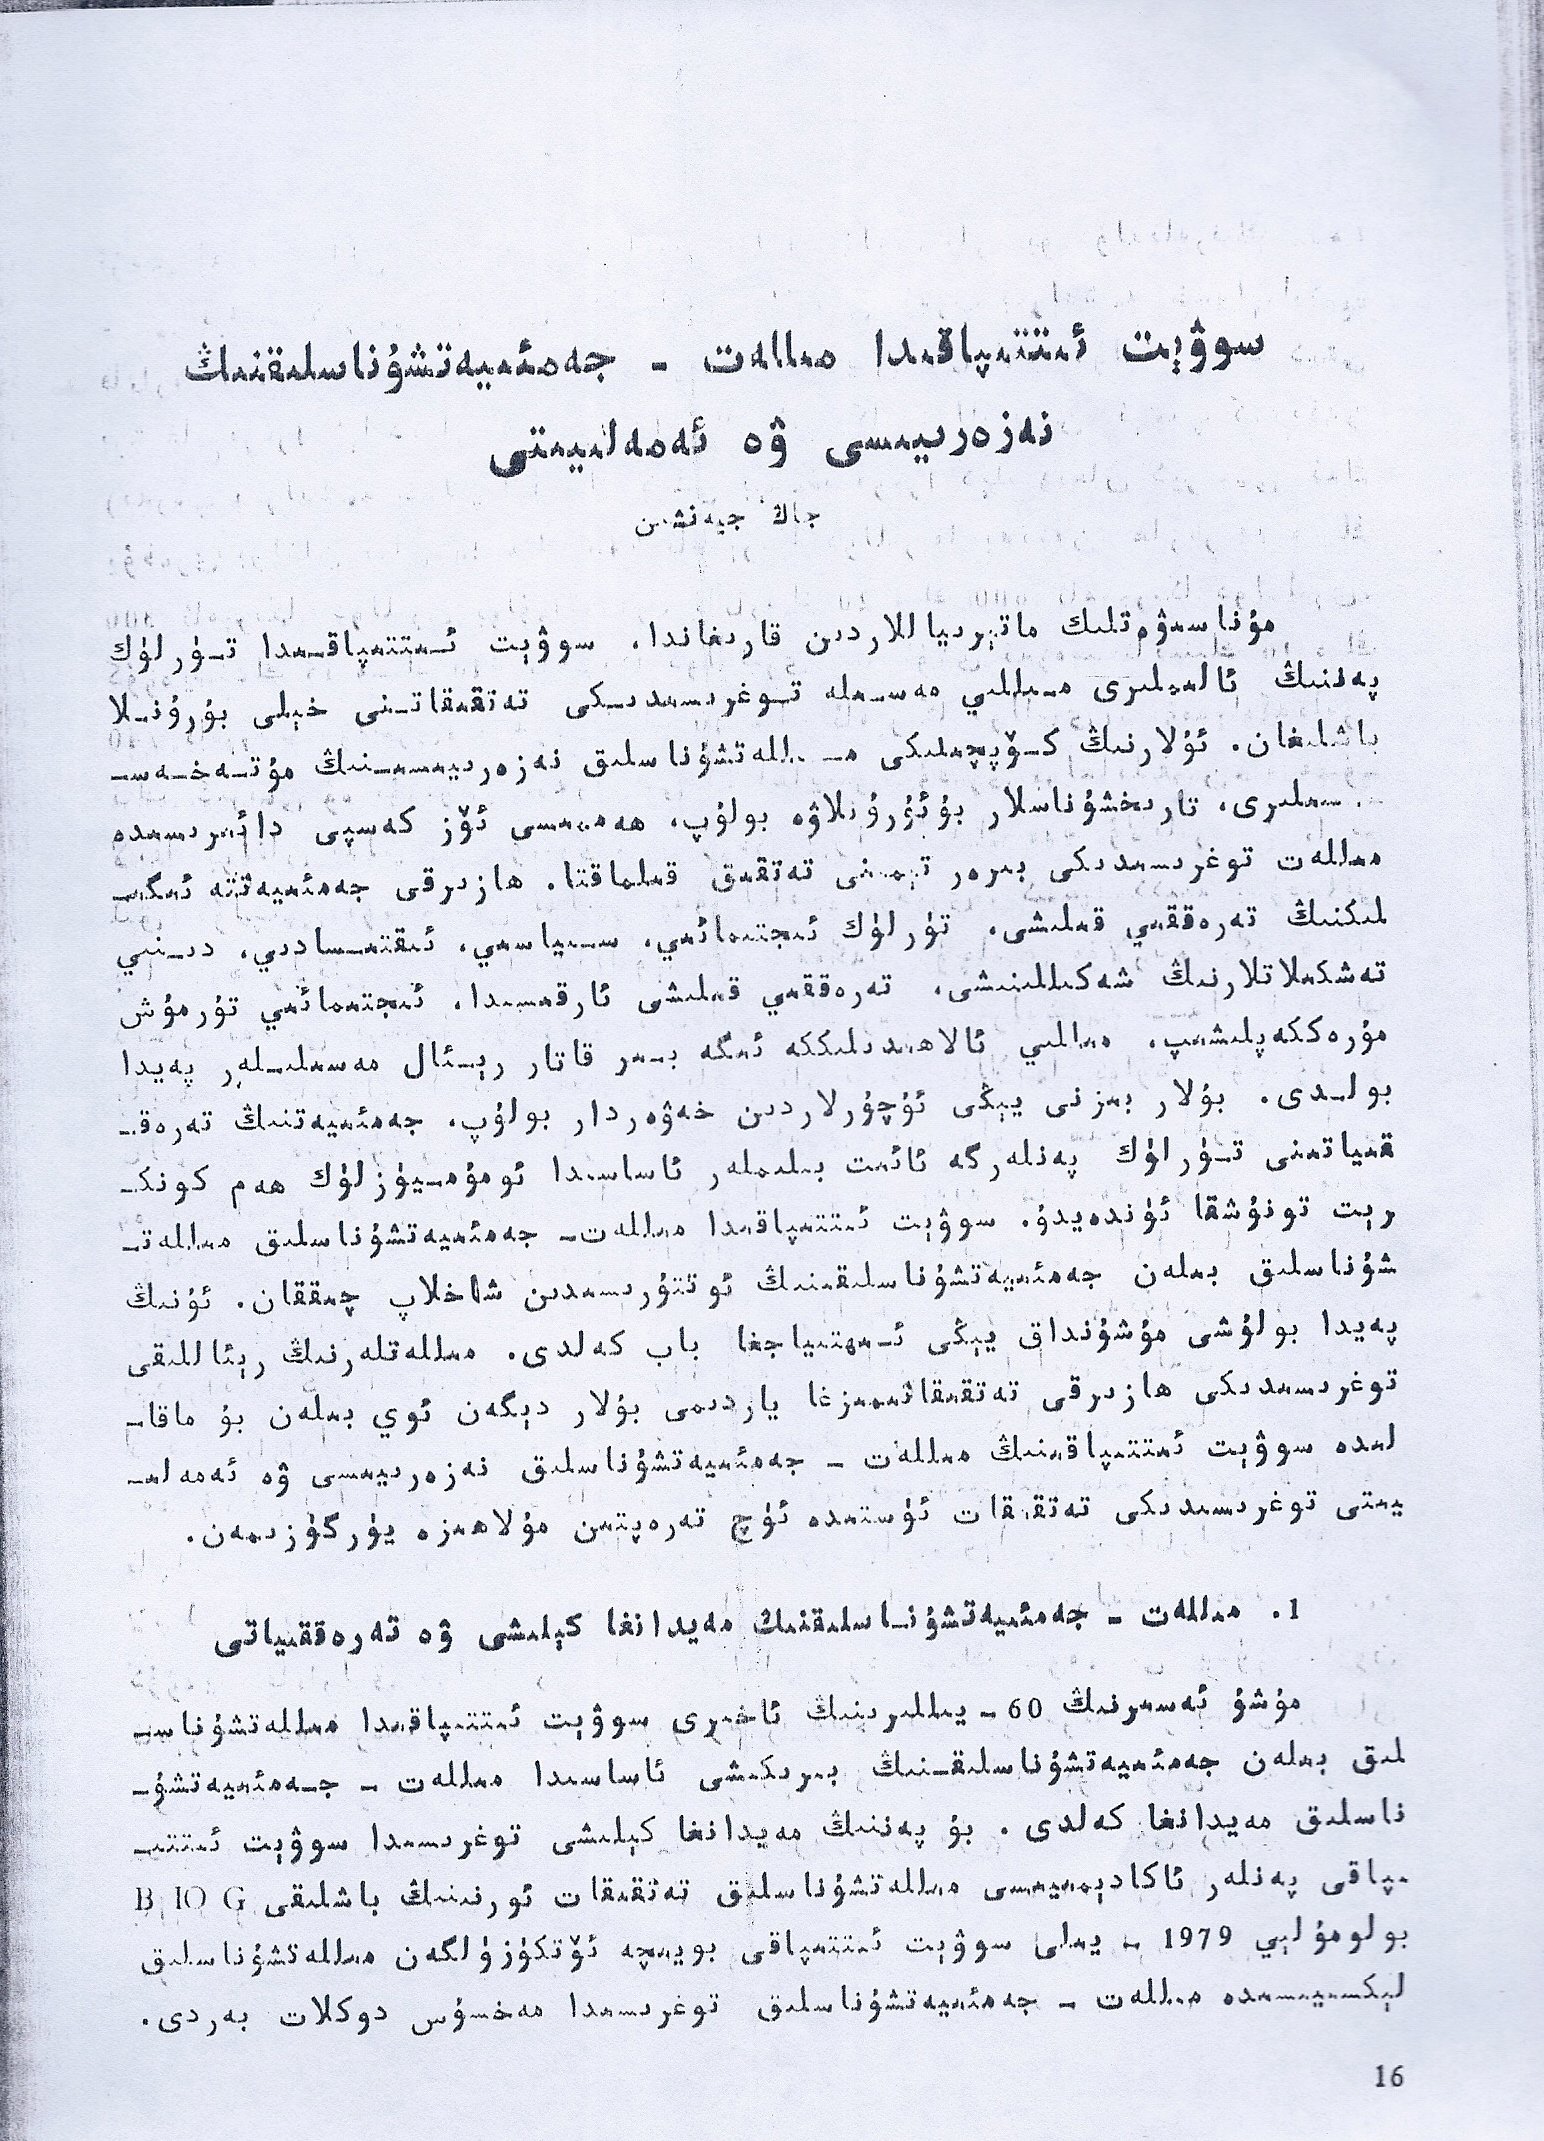 سوۋېت ئىتتىپاقىدا مىللەت - جەمئىيەتشۇناسلىقنىڭ
نەزەرىيىسى ۋە ئەمەلىيىتى
جاڭ جيەنشىن
مۇناسىۋەتلىك ماتېرىياللاردىن قارىغاندا، سوۋېت ئىتتىپاقىدا تۈرلۈك
پەننىڭ ئالىملىرى مىللىي مەسىلە توغرىسىدىكى تەتقىقاتنى خېلى بۇرۇنلا
باشلىغان. ئۇلارنىڭ كۆپچىلىكى مىللەتشۇناسلىق نەزەرىيىسىنىڭ مۇتەخەس-
سىلىرى، تارىخشۇناسلار بۇئۇرۇبلاۋە بولۇپ، ھەممىسى ئۆز كەسپى دائىرىسىدە
مىللەت توغرىسىدىكى بىرەر تېمىنى تەتقىق قىلماقتا. ھازىرقى جەمئىيەتتە ئىگى-
لىكنىڭ تەرەققىي قىلىشى، تۈرلۈك ئىجتىمائىي، سىياسىي، ئىقتىسادىي، دىنىي
تەشكىلاتلارنىڭ شەكىللىنىشى، تەرەققىي قىلىشى ئارقىسىدا، ئىجتىمائىي تۇرمۇش
مۇرەككەپلىشىپ، مىللىي ئالاھىدىلىككە ئىگە بىر قاتار رېئال مەسىلىلەر پەيدا
بولدى. بۇلار بىزنى يېڭى ئۇچۇرلاردىن خەۋەردار بولۇپ، جەمئىيەتنىڭ تەرەق-
قىياتىنى تۈرلۈك پەنلەرگە ئائىت بىلىملەر ئاساسىدا ئومۇميۈزلۈك ھەم كونك-
رېت تونۇشقا ئۈندەيدۇ. سوۋېت ئىتتىپاقىدا مىللەت- جەمئىيەتشۇناسلىق مىللەت-
شۇناسلىق بىلەن جەمئىيەتشۇناسلىقنىڭ ئوتتۇرىسىدىن شاخلاپ چىققان. ئۇنىڭ
پەيدا بولۇشى مۇشۇنداق يېڭى ئېھتىياجغا باب كەلدى. مىللەتلەرنىڭ رېئاللىقى
توغرىسىدىكى ھازىرقى تەتقىقاتىمىزغا ياردىمى بۇلار دېگەن ئوي بىلەن بۇ ماقا-
لىدە سوۋېت ئىتتىپاقىنىڭ مىللەت - جەمئىيەتشۇناسلىق نەزەرىيىسى ۋە ئەمەلى-
يىتى توغرىسىدىكى تەتقىقات ئۈستىدە ئۈچ تەرەپتىن مۇلاھىزە يۈرگۈزىمەن.
1. مىللەت - جەمئىيەتشۇناسلىقنىڭ مەيدانغا كېلىشى ۋە تەرەققىياتى
مۇشۇ ئەسىرنىڭ 60 - يىللىرىنىڭ ئاخىرى سوۋېت ئىتتىپاقىدا مىللەتشۇناس-
لىق بىلەن جەمئىيەتشۇناسلىقنىڭ بىرىكىشى ئاساسىدا مىللەت - جەمئىيەتشۇ-
ناسلىق مەيدانغا كەلدى. بۇ پەننىڭ مەيدانغا كېلىشى توغرىسىدا سوۋېت ئىتتى-
پاقى پەنلەر ئاكادېمىيىسى مىللەتشۇناسلىق تەتقىقات ئورنىنىڭ باشلىقى B IO G
بولومۇلېي 1979 - يىلى سوۋېت ئىتتىپاقى بويىچە ئۆتكۈزۈلگەن مىللەتشۇناسلىق
لېكسىيىسىدە مىللەت - جەمئىيەتشۇناسلىق توغرىسىدا مەخسۇس دوكلات بەردى.
16